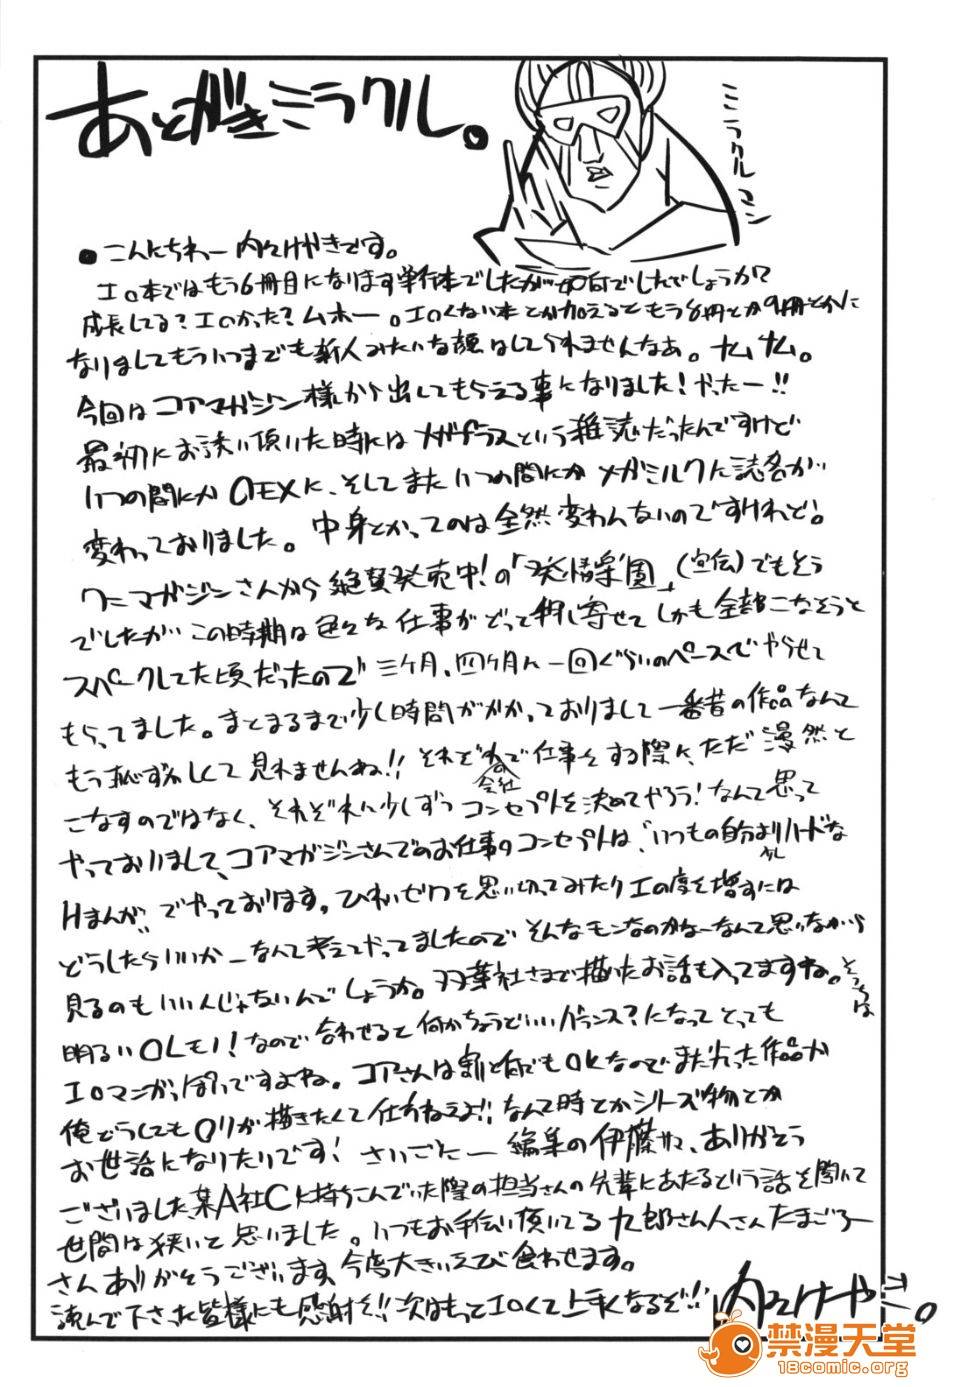 あとがきミラクル。
ミラクルマン
●こんにちわー 内々けやきです。
エロ本ではもう6冊目になります単行本でしたが如何でしたでしょうか?
成長してる?エロかった?ムホー。エロくない本とか加えるともう8冊とか9冊とかに
なりましてもういつまでも新人みたいな顔はしてられませんなぁ。ナムナム。
今回はコアマガジン様から出してもらえる事になりました!やったー!!
最初にお誘い頂いた時にはメガプラスという雑誌だったんですけど
いつの間にか0EXに、そしてまたいつの間にかメガミルクに誌名が
変わっておりました。中身とかってのは全然変わんないのですけれど。
ワニマガジンさんから絶賛発売中!の「発情楽園」(宣伝)でもそう
でしたがこの時期は色々な仕事がどっと押し寄せてしかも全部こなそうと
スパークしてた頃だったので三ヶ月、四ヶ月に一回ぐらいのペースでやらせて
もらってました。まとまるまで少し時間がかかっておりまして一番昔の作品なんて
もう恥ずかしくて見れませんね!!それぞれの会社で仕事をする際に、ただ漫然と
こなすのではなく、それぞれに少しずつコンセプトを決めてやろう!なんて思って
やっておりまして、コアマガジンさんでのお仕事のコンセプトは、“いつもの自分より少しハードな
Hまんが”でやっております。ひわいゼリフを思い切ってみたりエロの度を増すには
どうしたらいいかーなんて考えてやってましたのでそんなモンなのかなーなんて思いながら
見るのもいいんじゃないんでしょうか。双葉社さまで描いたお話も入ってますね。そっちは
明るいOLモノ!なので合わせると何かちょうどいいバランス?になってとっても
エロマンガっぽいですよね。コアさんは割と何でもOKなのでまた尖った作品か
俺どうしてもロリが描きたくて仕方ねえよ!!なんて時とかシリーズ物とか
お世話になりたいです!さいごにー編集の伊藤サマ、ありがとう
ございました、某A社Cに持ちこんでいた際の担当さんの先輩にあたるという話を聞いて
世間は狭いと思いました。いつもお手伝い頂いてる九郎さん人さんたまごろー
さんありがとうございます、今度大きいえび食わせます。
読んで下さった皆様にも感謝を!!次はもっとエロくて上手くなるぞ!!
内々けやき。
禁漫天堂
18comic.org